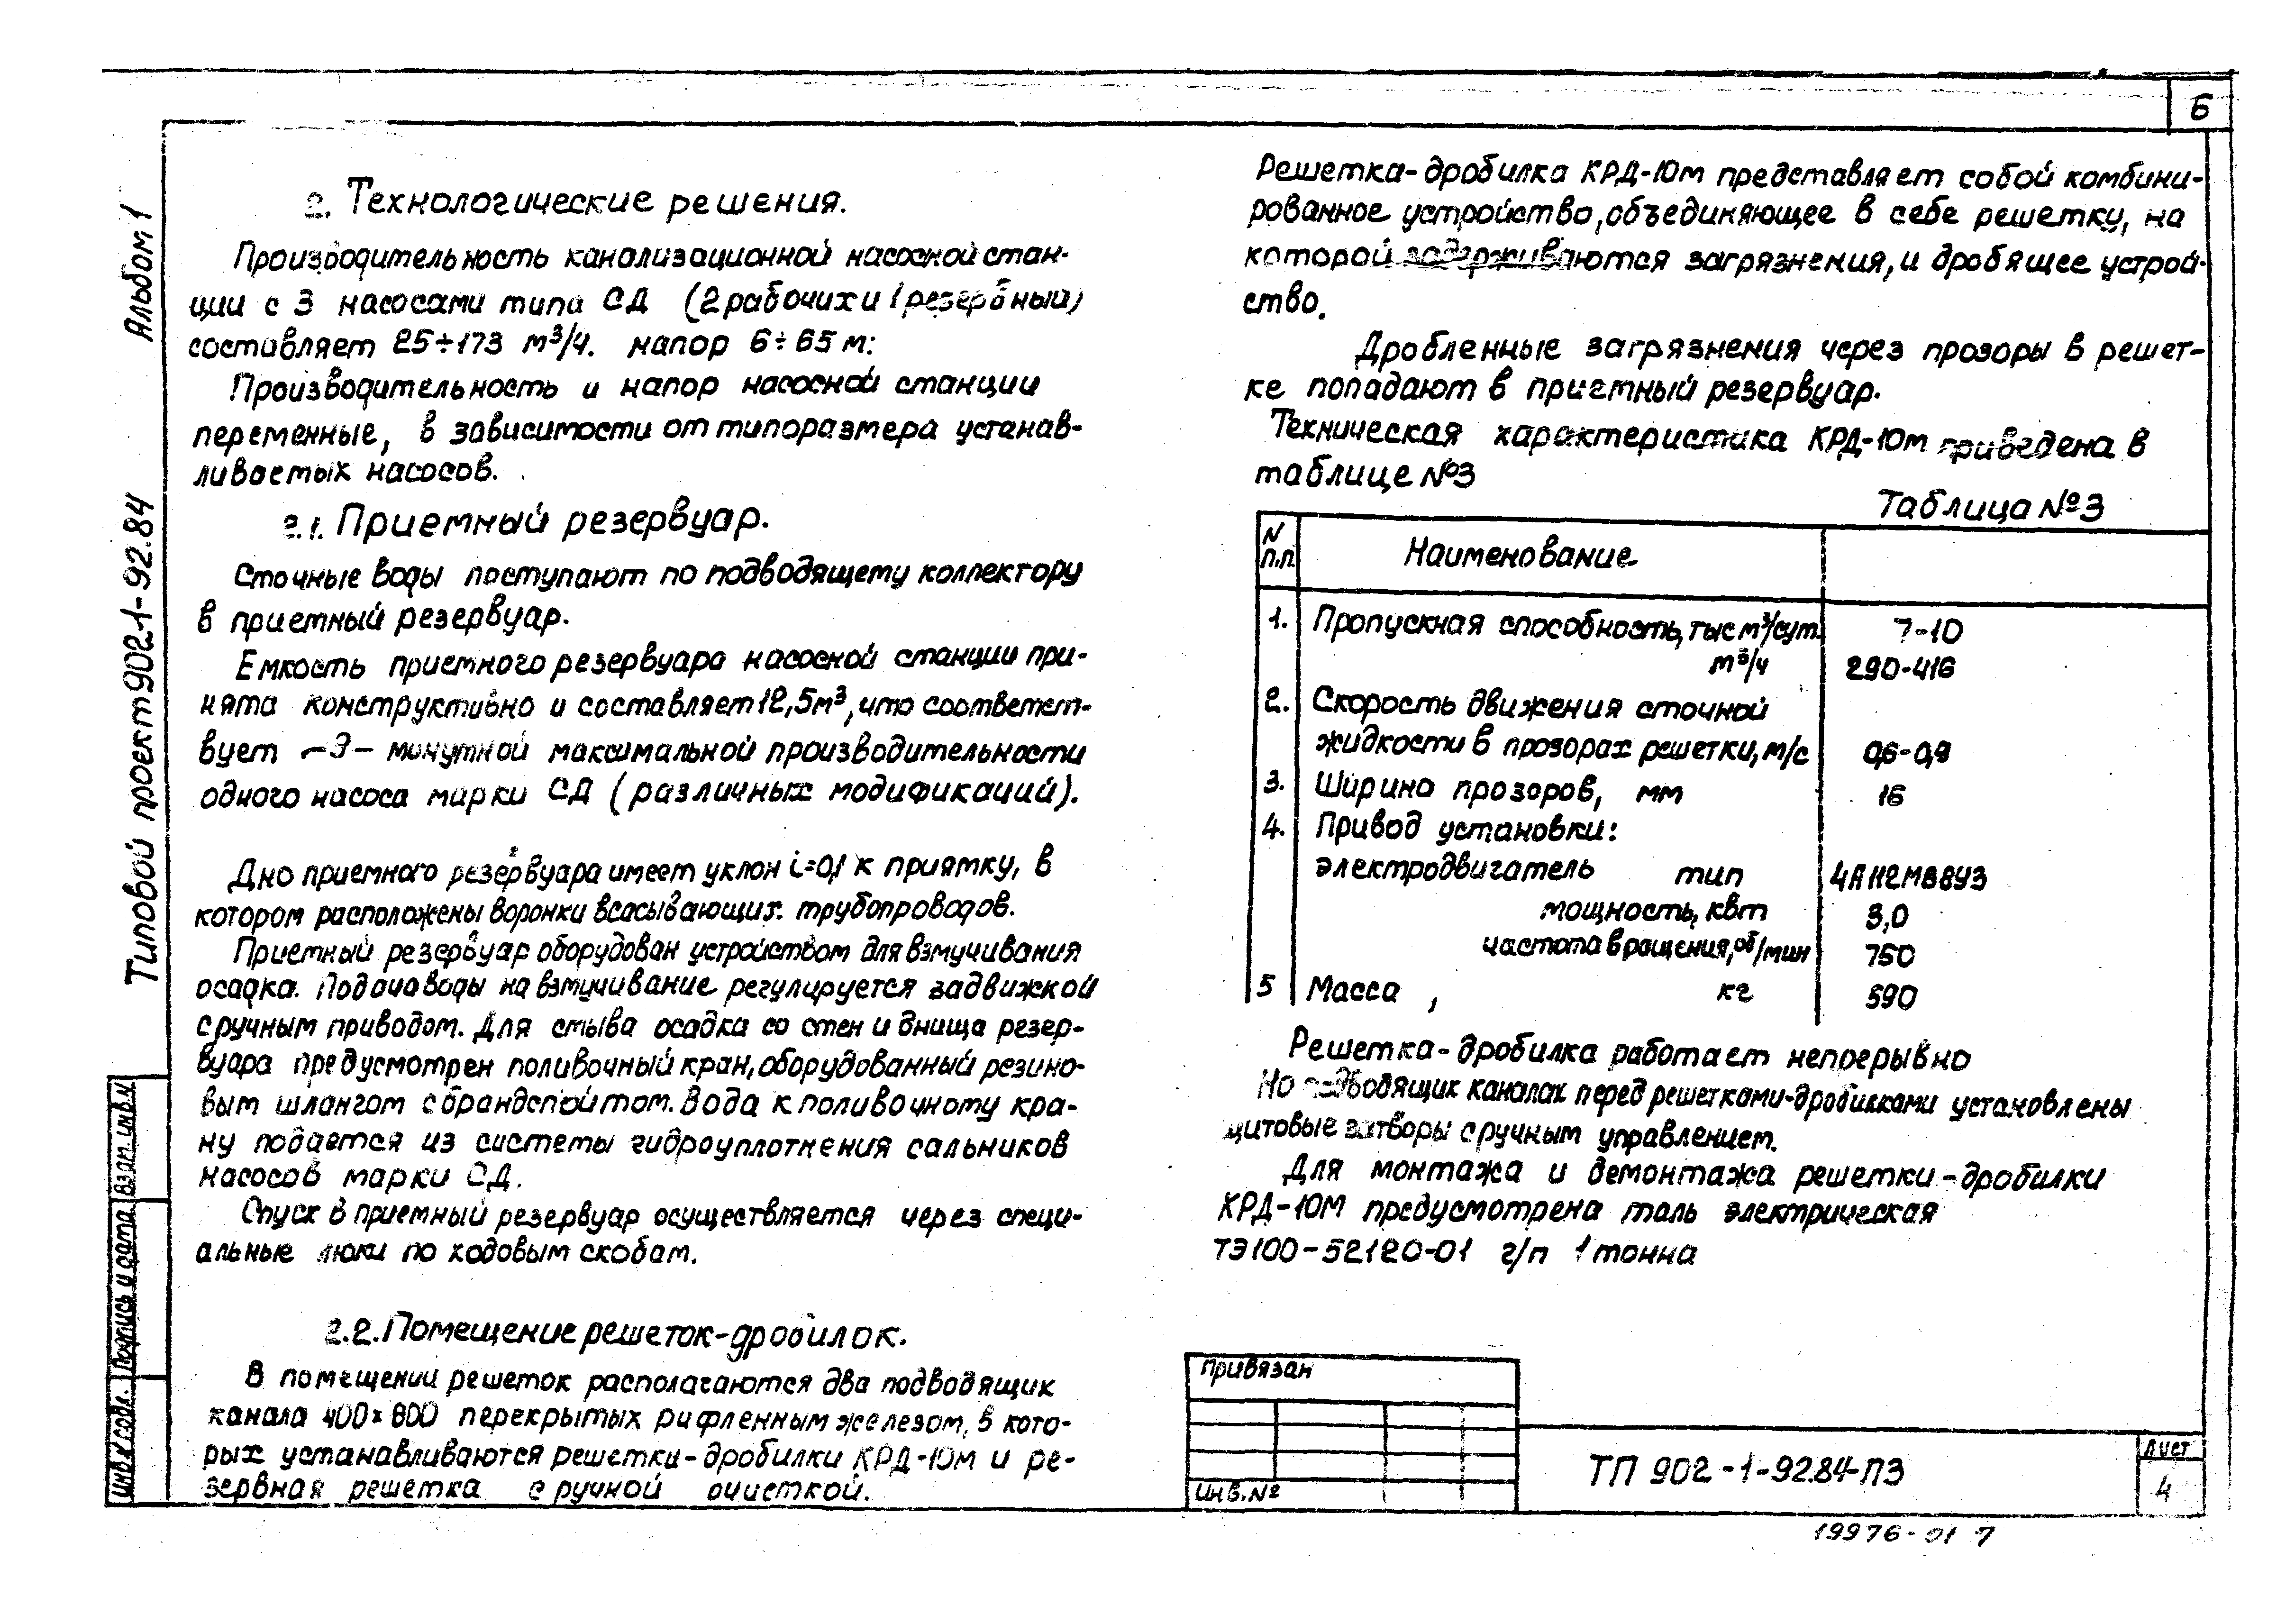 6
Альбом 1
Типовой проект 902-1-92.84
Взам. инв. N
Подпись и дата
Инв. N подл.
2. Технологические решения.
Производительность канализационной насосной стан-
ции с 3 насосами типа СД (2 рабочих и 1 резервный)
составляет 25÷173 м³/ч. напор 6÷65 м:
Производительность и напор насосной станции
переменные, в зависимости от типоразмера устанав-
ливаемых насосов.
2.1. Приемный резервуар.
Сточные воды поступают по подводящему коллектору
в приемный резервуар.
Емкость приемного резервуара насосной станции при-
нята конструктивно и составляет 12,5м³, что соответст-
вует ~3- минутной максимальной производительности
одного насоса марки СД (различных модификаций).
Дно приемного резервуара имеет уклон i=0,1 к приямку, в
котором расположены воронки всасывающих трубопроводов.
Приемный резервуар оборудован устройством для взмучивания
осадка. Подача воды на взмучивание регулируется задвижкой
с ручным приводом. Для смыва осадка со стен и днища резер-
вуара предусмотрен поливочный кран, оборудованный резино-
вым шлангом с брандспойтом. Вода к поливочному кра-
ну подается из системы гидроуплотнения сальников
насосов марки СД.
Спуск в приемный резервуар осуществляется через специ-
альные люки по ходовым скобам.
2.2. Помещение решеток-дробилок.
В помещении решеток располагаются два подводящих
канала 400×800 перекрытых рифленным железом, в кото-
рых устанавливаются решетки-дробилки КРД-10м и ре-
зервная решетка с ручной очисткой.
Решетка-дробилка КРД-10м представляет собой комбини-
рованное устройство, объединяющее в себе решетку, на
которой задерживаются загрязнения, и дробящее устрой-
ство.
Дробленные загрязнения через прозоры в решет-
ке попадают в приемный резервуар.
Техническая характеристика КРД-10м приведена в
таблице №3
Таблица №3
N п.п. Наименование
1. Пропускная способность, тыс м³/сут. 7-10
м³/ч 290-416
2. Скорость движения сточной
жидкости в прозорах решетки, м/с 0,6-0,9
3. Ширина прозоров, мм 16
4. Привод установки:
электродвигатель тип 4А112МВ8У3
мощность, квт 3,0
частота вращения, об/мин 750
5 Масса , кг 590
Решетка-дробилка работает непрерывно
На подводящих каналах перед решетками-дробилками установлены
щитовые затворы с ручным управлением.
Для монтажа и демонтажа решетки-дробилки
КРД-10М предусмотрена таль электрическая
ТЭ100-52120-01 г/п 1 тонна
Привязан
Инв. №
ТП 902-1-92.84-ПЗ
Лист
4
19976-01 7